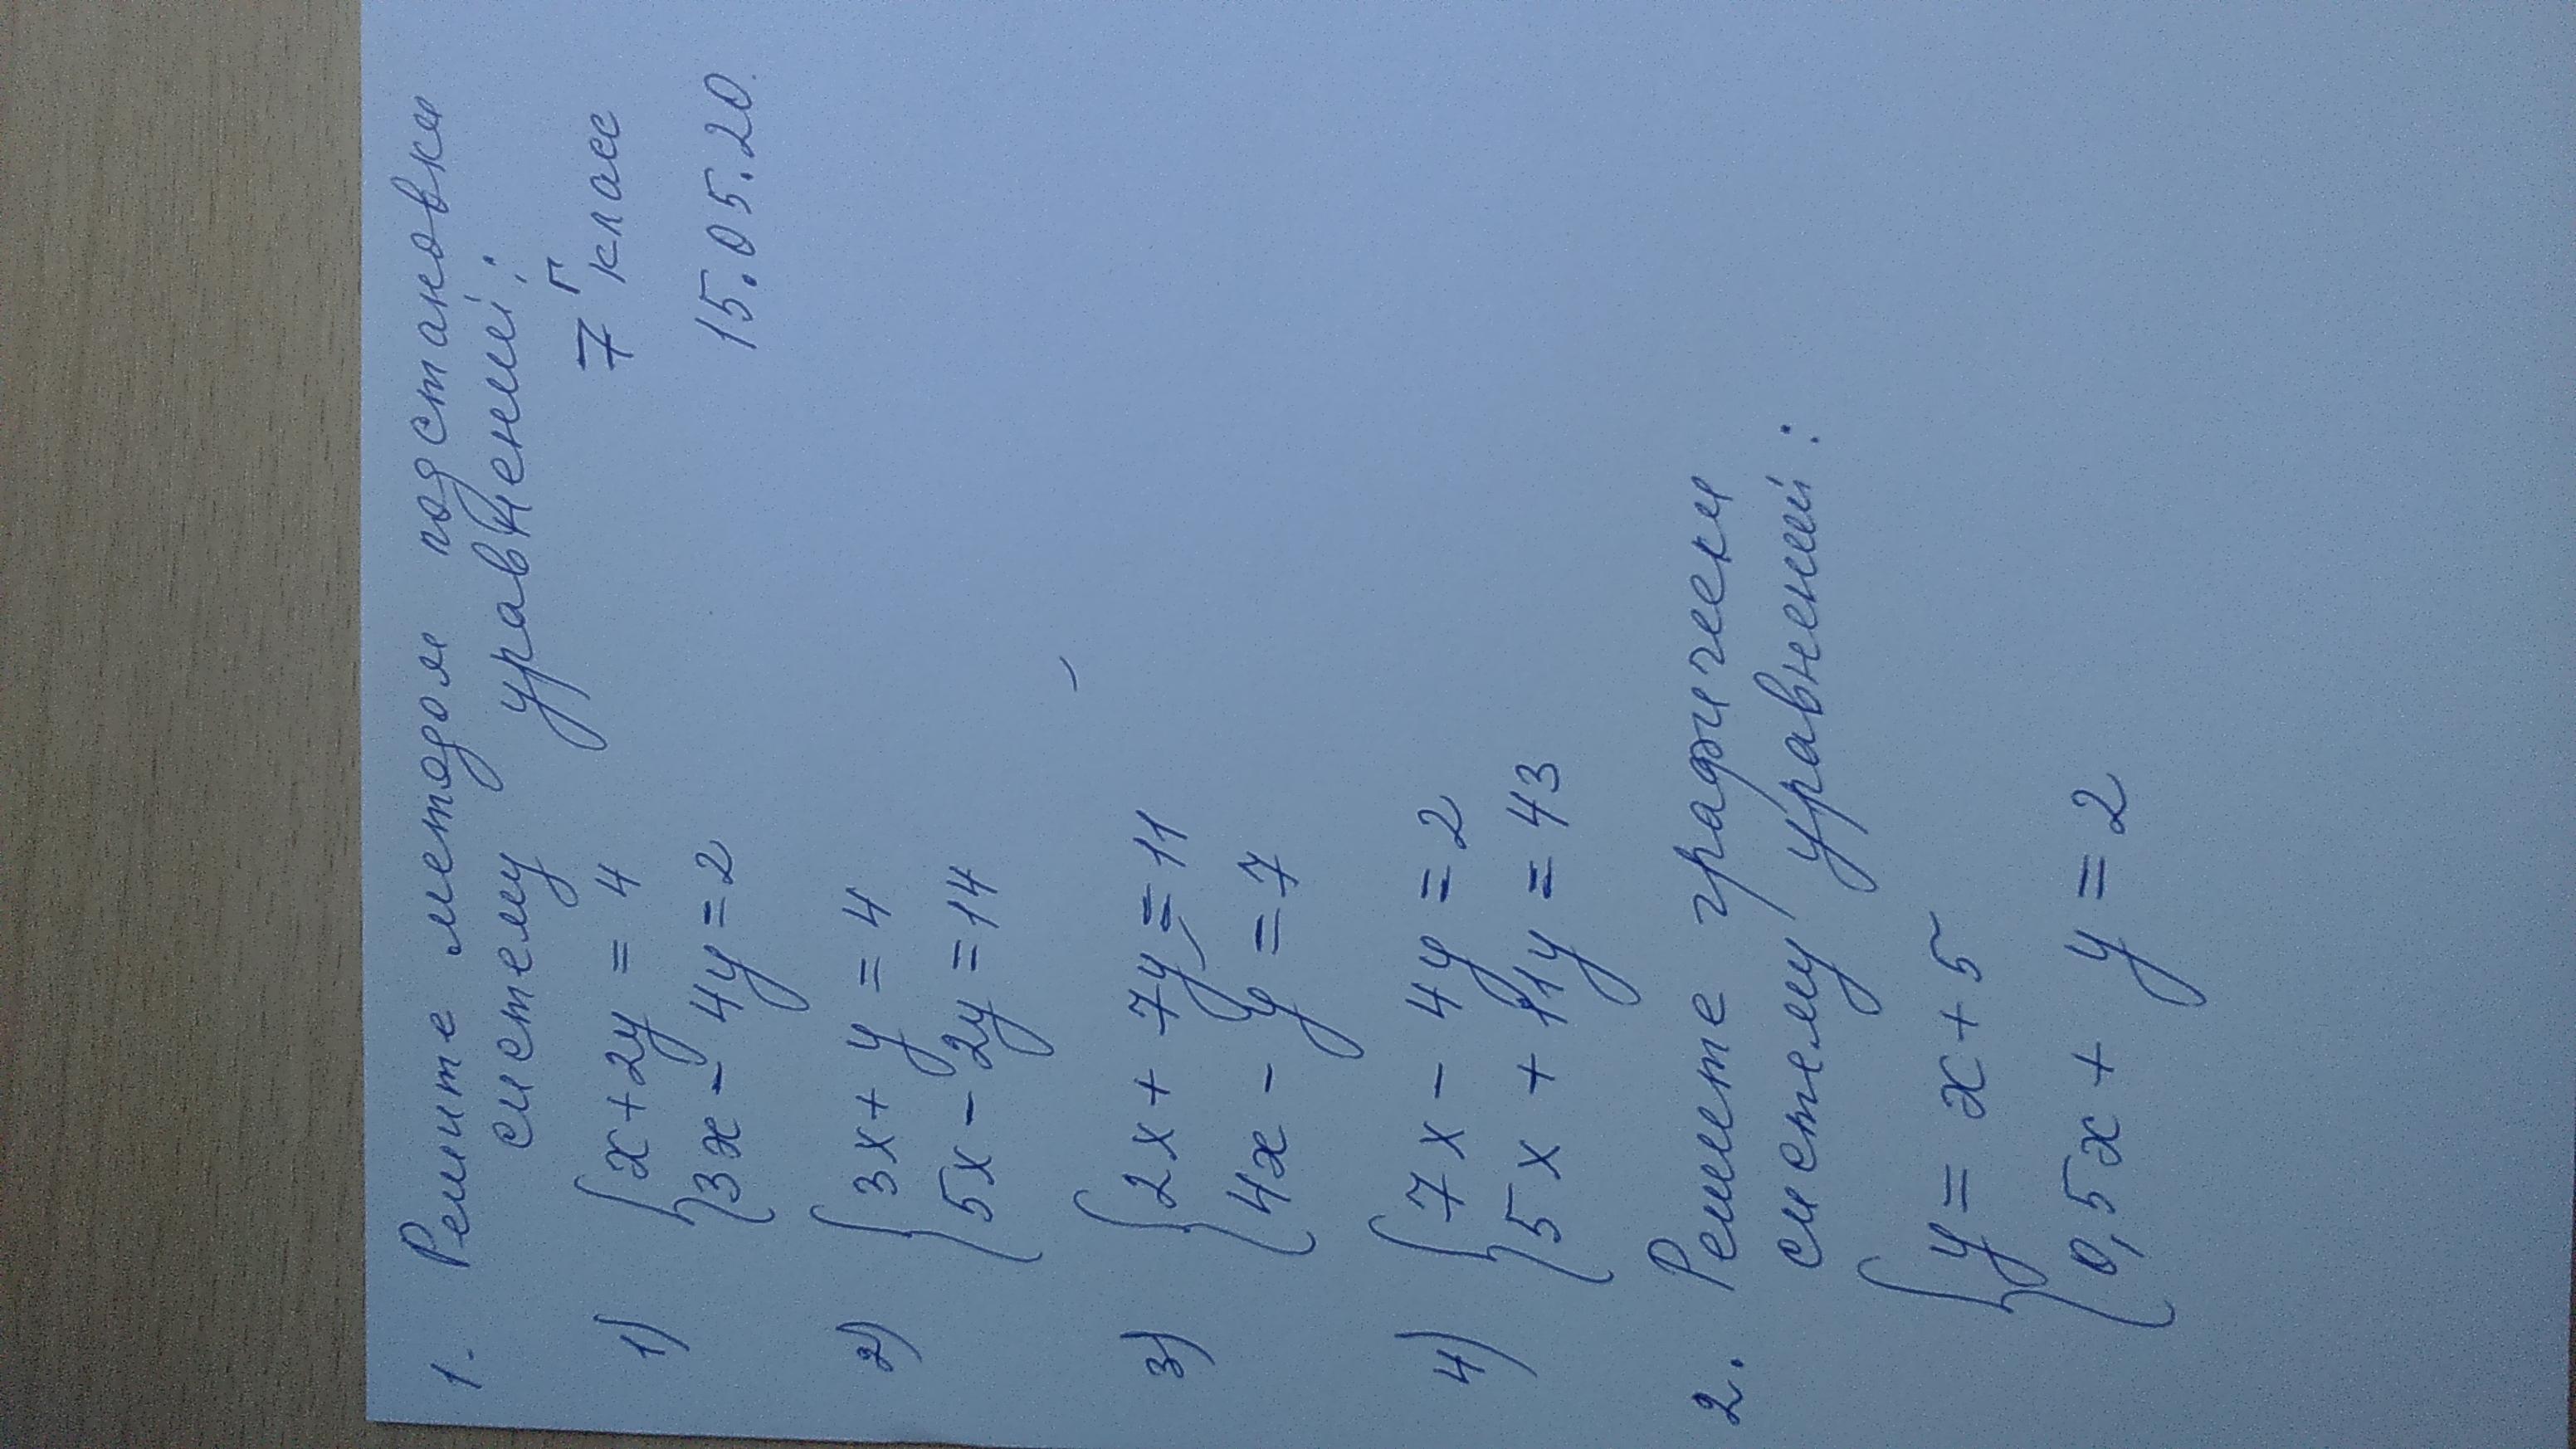 1. Решите методом подстановки
систему уравнений:
7 г класс
15.05.20.
1) { x + 2y = 4
3x - 4y = 2
2) { 3x + y = 4
5x - 2y = 14
3) { 2x + 7y = 11
4x - y = 7
4) { 7x - 4y = 2
5x + 11y = 43
2. Решите графически
систему уравнений:
{ y = x + 5
0,5x + y = 2